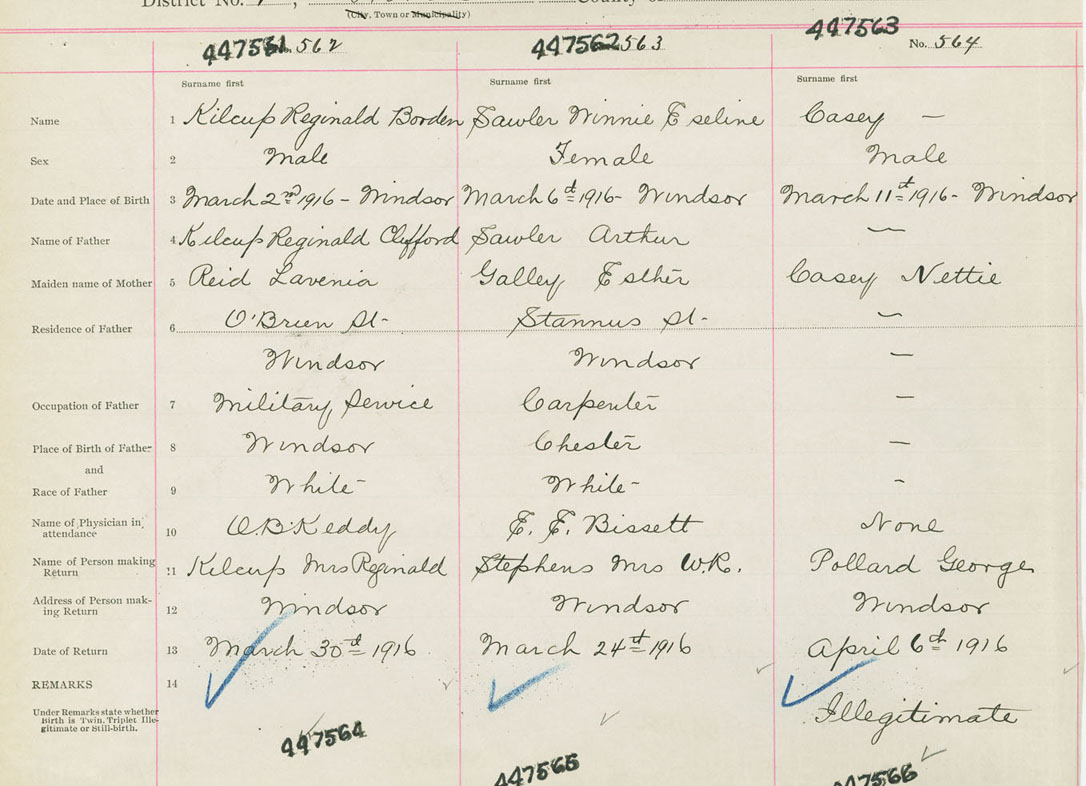 District No. 7,
County of
(City, Town or Municipality)
447561 562
447562 563
447563
No. 564
Surname first
Surname first
Surname first
Name 1 Kilcup Reginald Borden Sawler Winnie Eseline Casey —
Sex 2 Male Female Male
Date and Place of Birth 3 March 2nd 1916 - Windsor March 6th 1916 - Windsor March 11th 1916 - Windsor
Name of Father 4 Kilcup Reginald Clyfford Sawler Arthur —
Maiden name of Mother 5 Reid Lavenia Galley Esther Casey Nettie
Residence of Father 6 O'Brien St- Stannus St- —
Windsor Windsor —
Occupation of Father 7 Military Service Carpenter —
Place of Birth of Father 8 Windsor Chester —
and
Race of Father 9 White- White- -
Name of Physician in attendance 10 O.B. Keddy E. F. Bissett None
Name of Person making Return 11 Kilcup Mrs Reginald Stephens Mrs W.R. Pollard George
Address of Person mak-ing Return 12 Windsor Windsor Windsor
Date of Return 13 March 30th 1916 March 24th 1916 April 6th 1916
REMARKS 14
Under Remarks state whether
Birth is Twin, Triplet Ille-
gitimate or Still-birth.
Illegitimate
447564
447565
447566